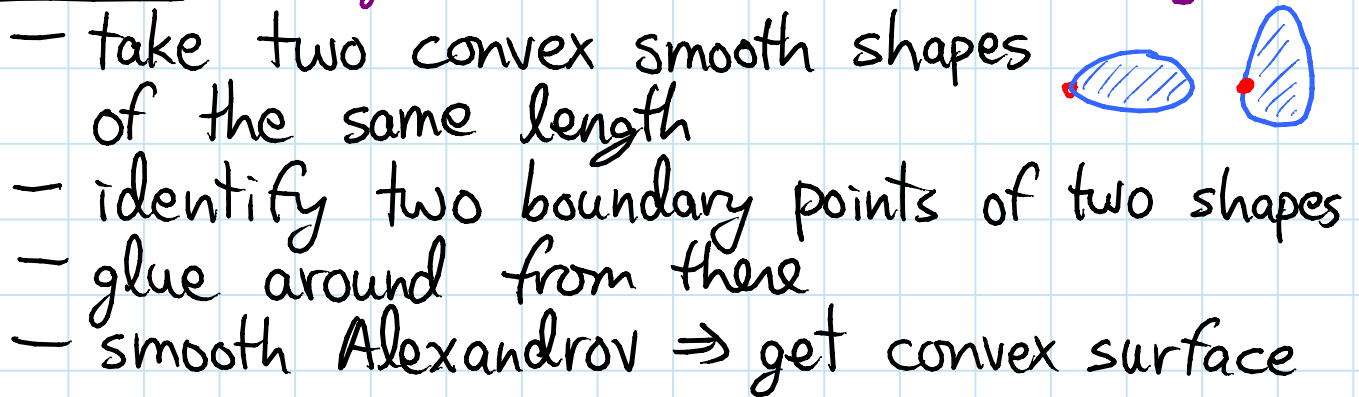 – take two convex smooth shapes
of the same length
– identify two boundary points of two shapes
– glue around from there
– smooth Alexandrov ⇒ get convex surface